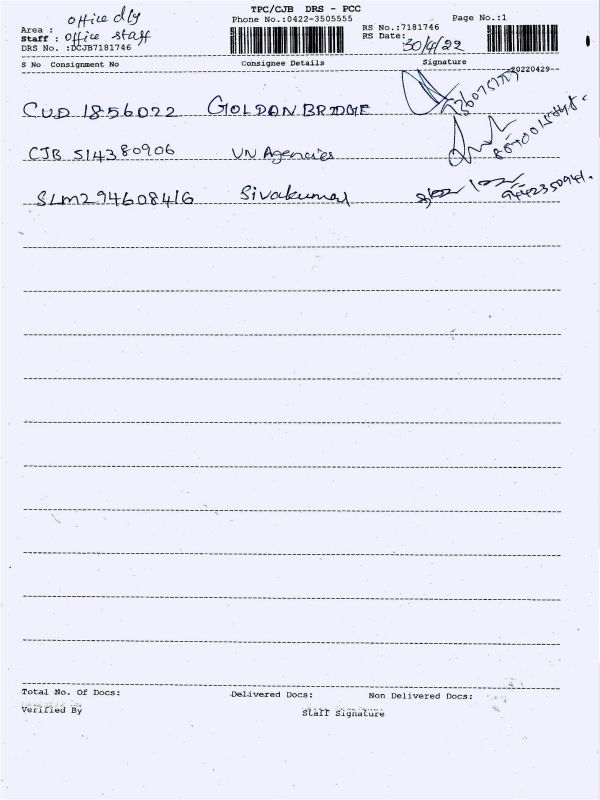 TPC/CJB DRS - PCC
Phone No.:0422-3505555
Page No.:1
Area : office dly
Staff : office staff
DRS No. :DCJB7181746
RS No.:7181746
RS Date: 30/4/22
S No Consignment No Consignee Details Signature
20220429
CUD 1856022 GOLDAN BRIDGE
CJB 514380906 VN Agencies
SLM294608416 Sivakumar
9442350941.
Total No. Of Docs: Delivered Docs: Non Delivered Docs:
Verified By Staff Signature